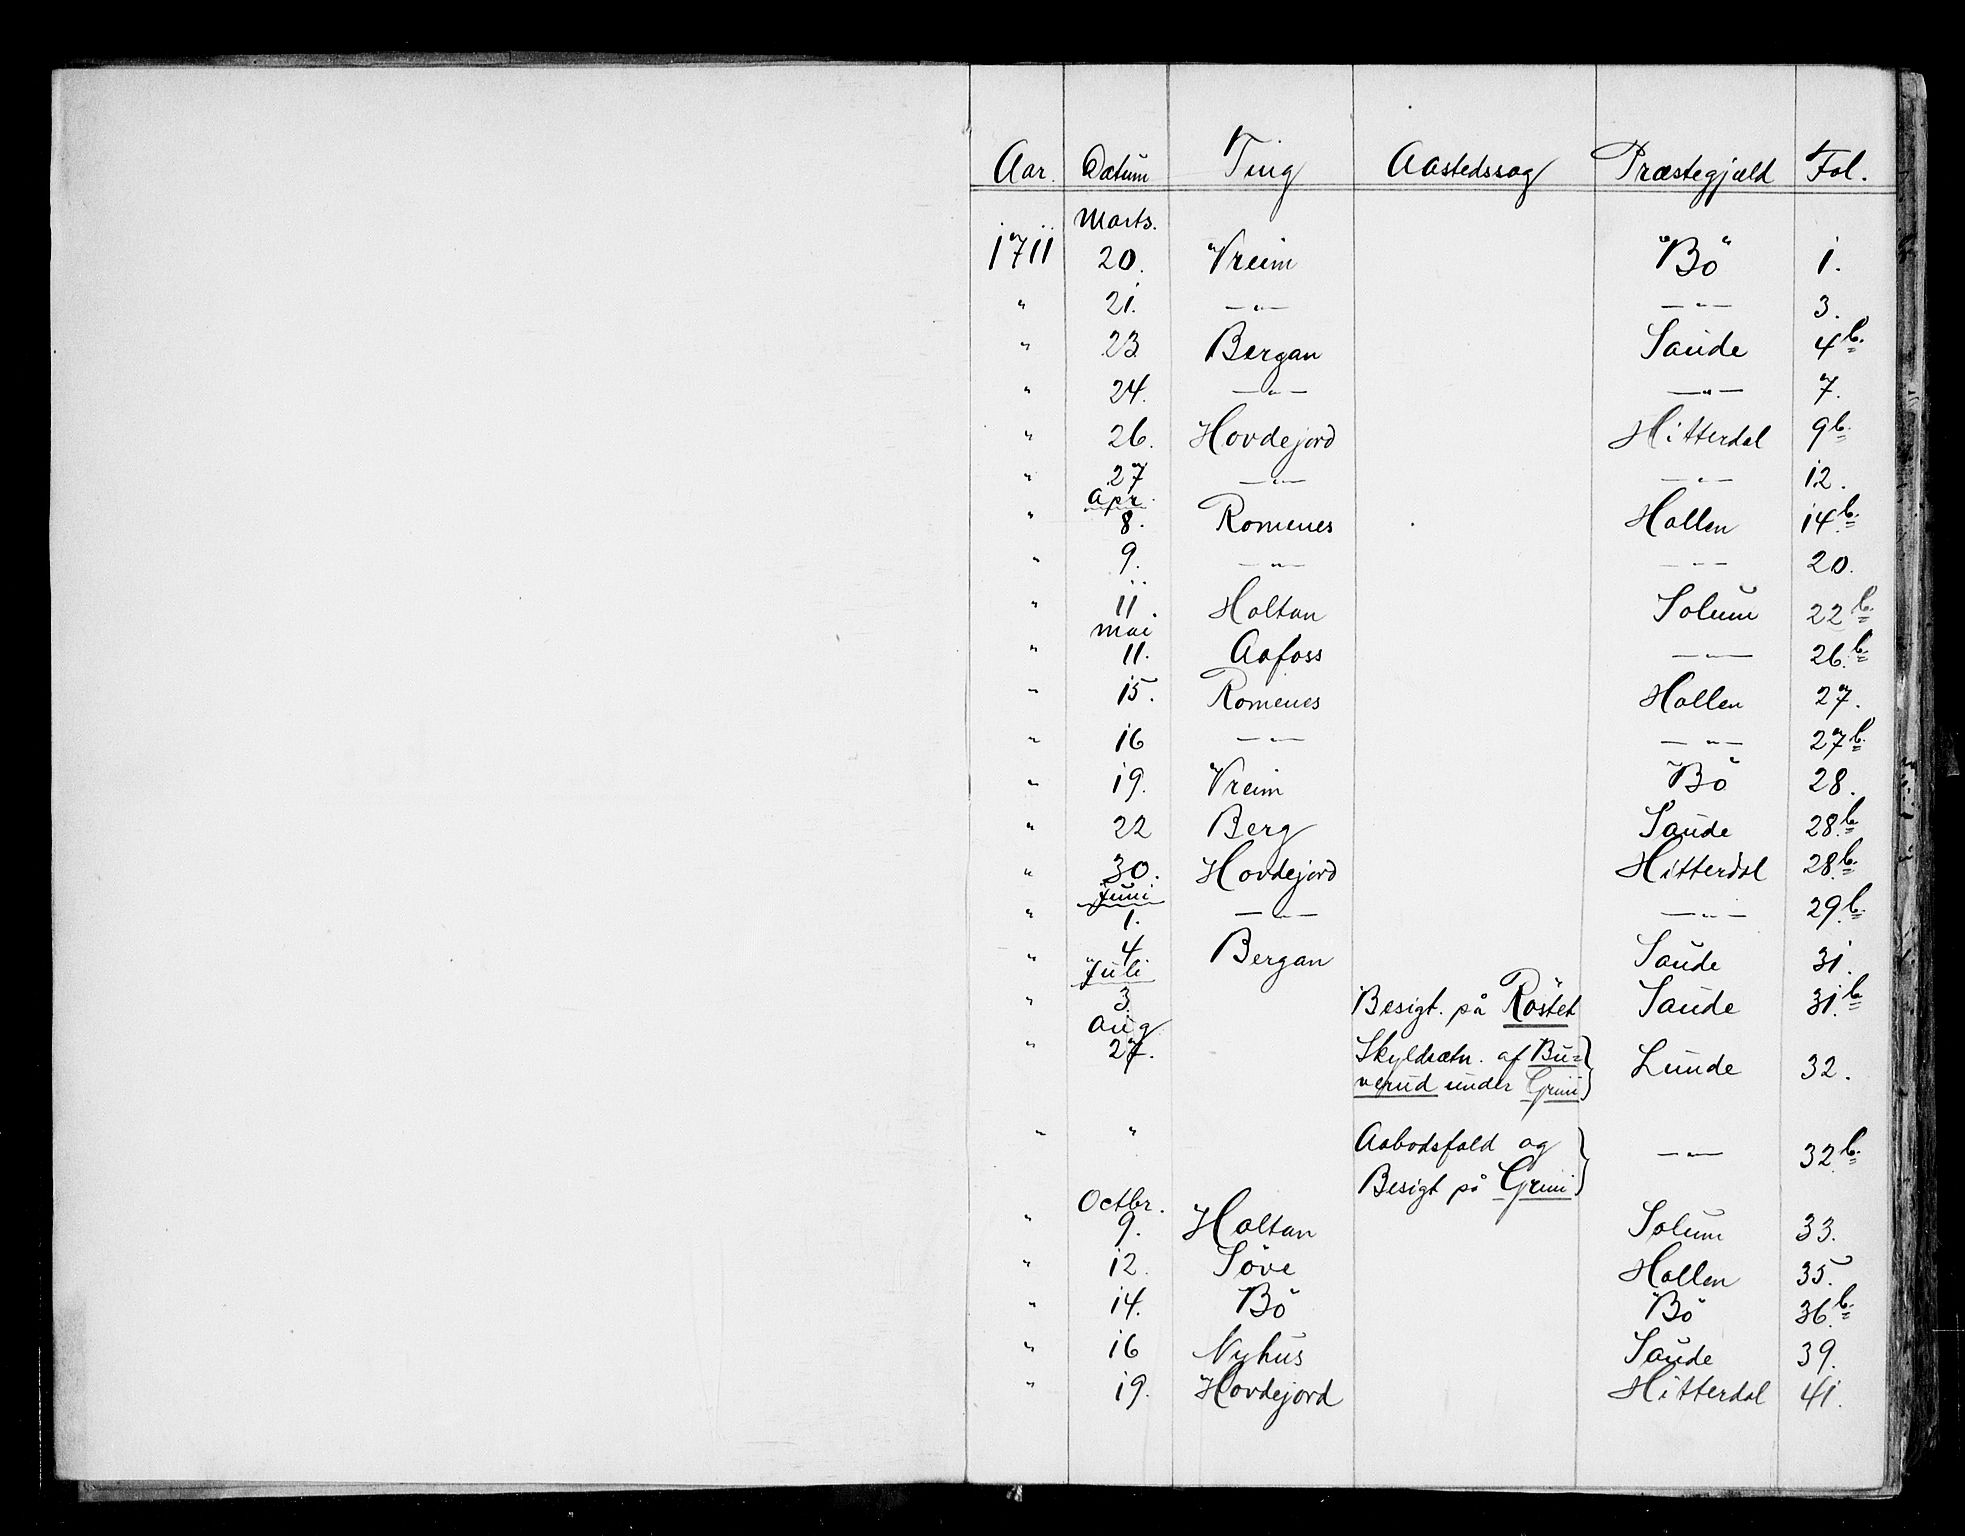 Aar. Datum Ting Aastedssag Præstegjæld Fol.
Marts.
1711 20. Vreim Bö 1.
" 21. —"— —"— 3.
" 23 Bergan Saude 4b.
" 24. —"— —"— 7.
" 26. Hovdejord Hitterdal 9b.
" 27 —"— —"— 12.
Apr.
" 8. Romenes Hollen 14b.
" 9. —"— —"— 20.
" 11. Holtan Solum 22b.
Mai
" 11. Aafoss —"— 26.b.
" 15. Romenes Hollen 27.
" 16 —"— —"— 27b.
" 19. Vreim Bö 28.
" 22 Berg Saude 28.b.
" 30. Hovdejord Hitterdal 28.b.
Juni
" 1. —"— —"— 29.b.
" 4. Bergan Saude 31.
Juli
" 3. Besigt. på Röstet Saude 31.b.
Aug
" 27. Skyldsætn. af Bu=
verud under Grini Lunde 32.
" " Aabodsfald og
Besigt på Grini —"— 32.b.
Octbr.
" 9. Holtan Solum 33.
" 12. Söve Hollen 35.
" 14. Bö Bö 36.b.
" 16 Nyhus Saude 39.
" 19. Hovdejord Hitterdal 41.